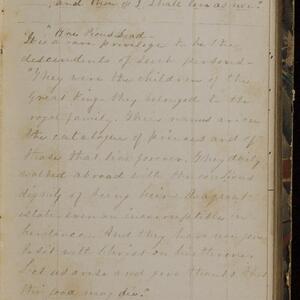 and then if I shall love as we?"
"Are Pious Dead -
It is a rare privilege to be the
descendents of such persons -
"They were the children of the
Great King - they belonged to the
royal family. Their names are in
the catalogue of princes and of
those that live forever. They daily
walked abroad with the conscious
dignity of being heirs to a great
estate even an incorruptible in
heritance. And they have now gone
to sit with Christ on his throne.
Let us arise and give thanks that
the good may die."